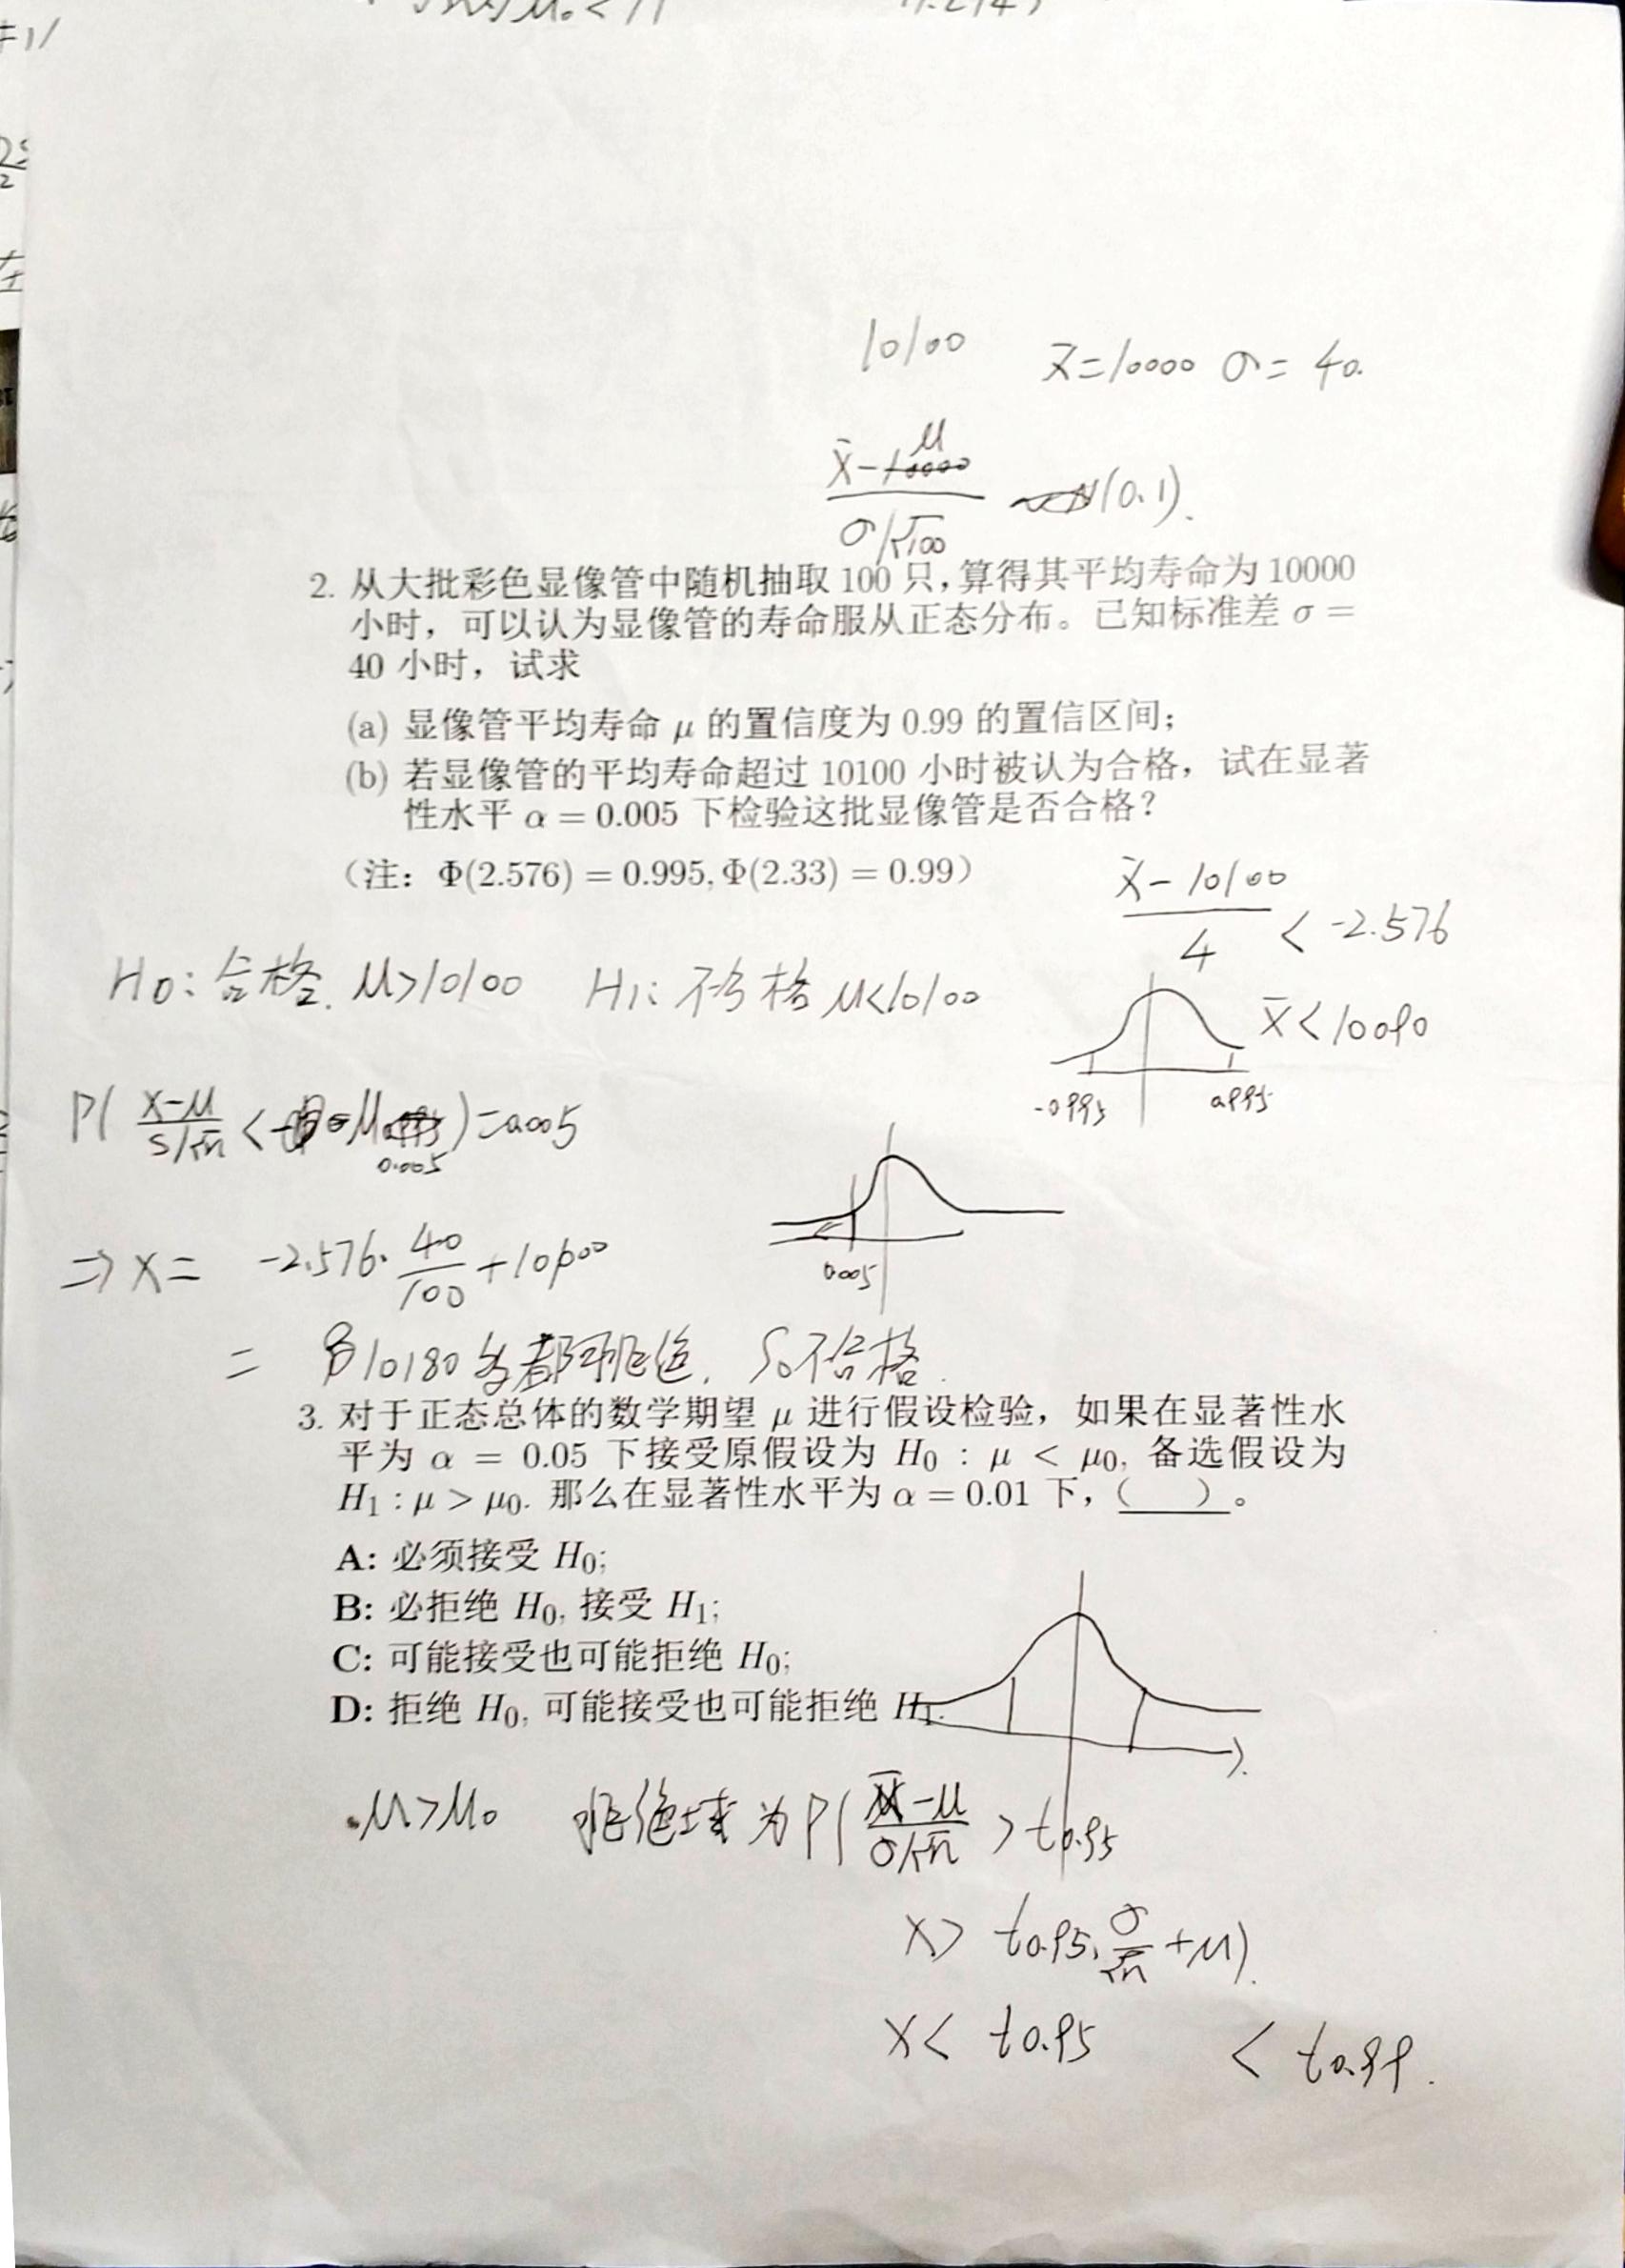 10100
x̄=10000 σ=40.
μ
x̄-10000
σ/√100
N(0.1).
2. 从大批彩色显像管中随机抽取 100 只,算得其平均寿命为 10000
小时,可以认为显像管的寿命服从正态分布。已知标准差 σ =
40 小时,试求
(a) 显像管平均寿命 μ 的置信度为 0.99 的置信区间;
(b) 若显像管的平均寿命超过 10100 小时被认为合格,试在显著
性水平 α = 0.005 下检验这批显像管是否合格?
(注: Φ(2.576) = 0.995, Φ(2.33) = 0.99)
x̄-10100
4
< -2.576
H0: 合格. μ>10100 H1: 不合格 μ<10100
x̄<10090
-0.995 0.995
P( x-μ
s/√n
< -μ
0.005
)=0.005
0.005
⇒ x = -2.576. 40
100
+10000
= 10180 都拒绝. So不合格.
3. 对于正态总体的数学期望 μ 进行假设检验,如果在显著性水
平为 α = 0.05 下接受原假设为 H0 : μ < μ0, 备选假设为
H1 : μ > μ0. 那么在显著性水平为 α = 0.01 下, ( )。
A: 必须接受 H0;
B: 必拒绝 H0, 接受 H1;
C: 可能接受也可能拒绝 H0;
D: 拒绝 H0, 可能接受也可能拒绝 H1.
μ>μ0 拒绝域为P( x̄-μ
σ/√n
> t0.95
x> t0.95. σ
√n
+μ).
x< t0.95 < t0.99.